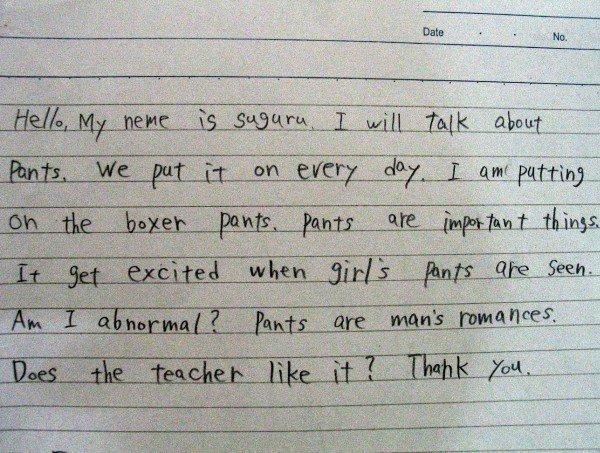 Date . . No.
Hello, My neme is suguru. I will talk about
Pants. We put it on every day. I am putting
on the boxer pants. pants are important things.
It get excited when girl's pants are seen.
Am I abnormal? Pants are man's romances.
Does the teacher like it? Thank you.